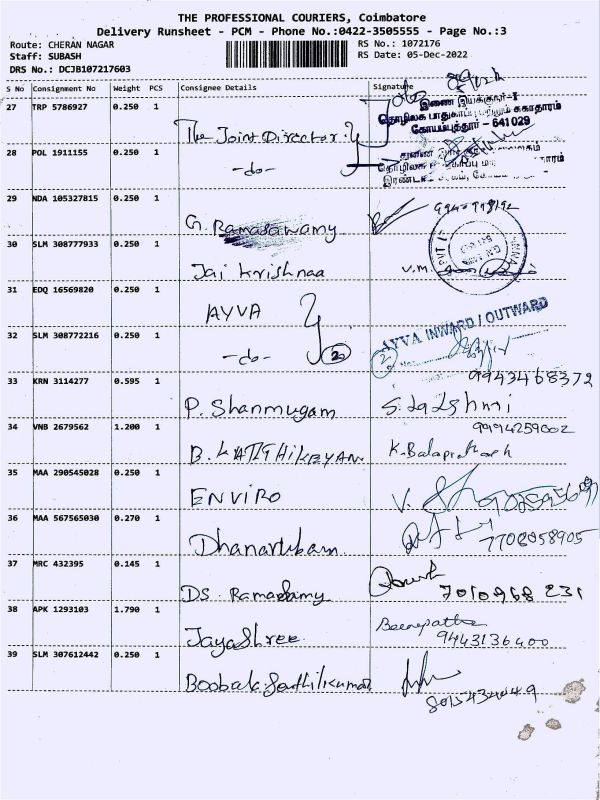 THE PROFESSIONAL COURIERS, Coimbatore
Delivery Runsheet - PCM - Phone No.:0422-3505555 - Page No.:3
Route: CHERAN NAGAR
RS No.: 1072176
Staff: SUBASH
RS Date: 05-Dec-2022
DRS No.: DCJB107217603
S No Consignment No Weight PCS Consignee Details Signature
27 TRP 5786927 0.250 1 The Joint Director
இணை இயக்குநர்-I
தொழிலக பாதுகாப்பு மற்றும் சுகாதாரம்
கோயம்புத்தூர் - 641 029
28 POL 1911155 0.250 1 -do-
29 NDA 105327815 0.250 1 G. Ramasawamy
30 SLM 308777933 0.250 1 Jai Krishnaa V.M.
31 EDQ 16569820 0.250 1 AYVA
AYVA INWARD / OUTWARD
32 SLM 308772216 0.250 1 -do- 2 2
9943468372
33 KRN 3114277 0.595 1 P. Shanmugam
9994259002
34 VNB 2679562 1.200 1 B. KARTHIKEYAN K. Balaprakash
35 MAA 290545028 0.250 1 ENVIRO V.
36 MAA 567565030 0.270 1
7708058905
37 MRC 432395 0.145 1 DS Ramasamy 7010968231
38 APK 1293103 1.790 1 JayaShree
9443136400
39 SLM 307612442 0.250 1
8015434049